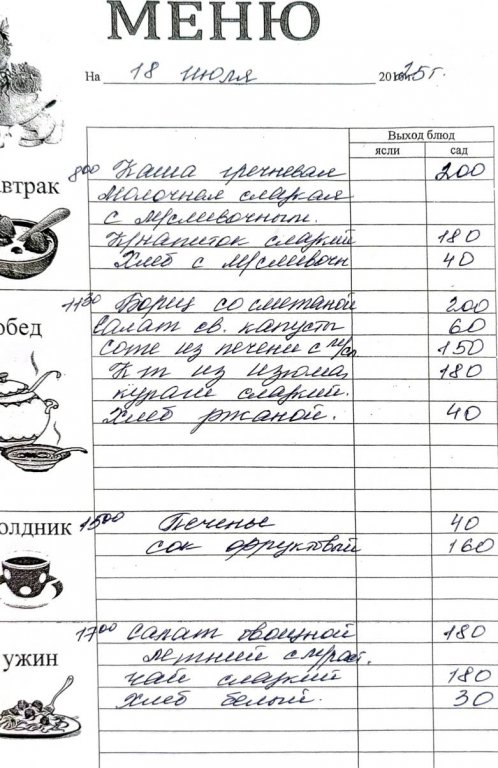 МЕНЮ
На 18 июля 2025г.
Выход блюд
ясли сад
автрак 8 00 Каша гречневая 200
молочная сладкая
с м/сливочным.
К/напиток сладкий 180
Хлеб с м/сливочн 40
обед 11 30 Борщ со сметаной 200
Салат св. капусты 60
Соте из печени с м/сл 150
К-т из изюма, 180
кураги сладкий.
Хлеб ржаной. 40
олдник 15 00 Печенье 40
сок фруктовый 160
ужин 17 00 Салат овощной 180
летний с м/раст.
чай сладкий 180
Хлеб белый. 30